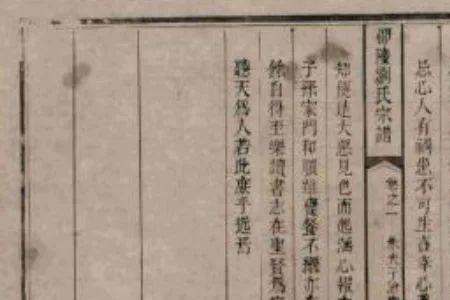 忌心人有禍患不可生喜幸心
邵陵劉氏宗譜 卷之一
恐便是大惡見色而起滛心報
子孫家門和順雖饔飧不繼亦
餘自得至樂讀書志在聖賢爲
聽天爲人若此庶乎近焉